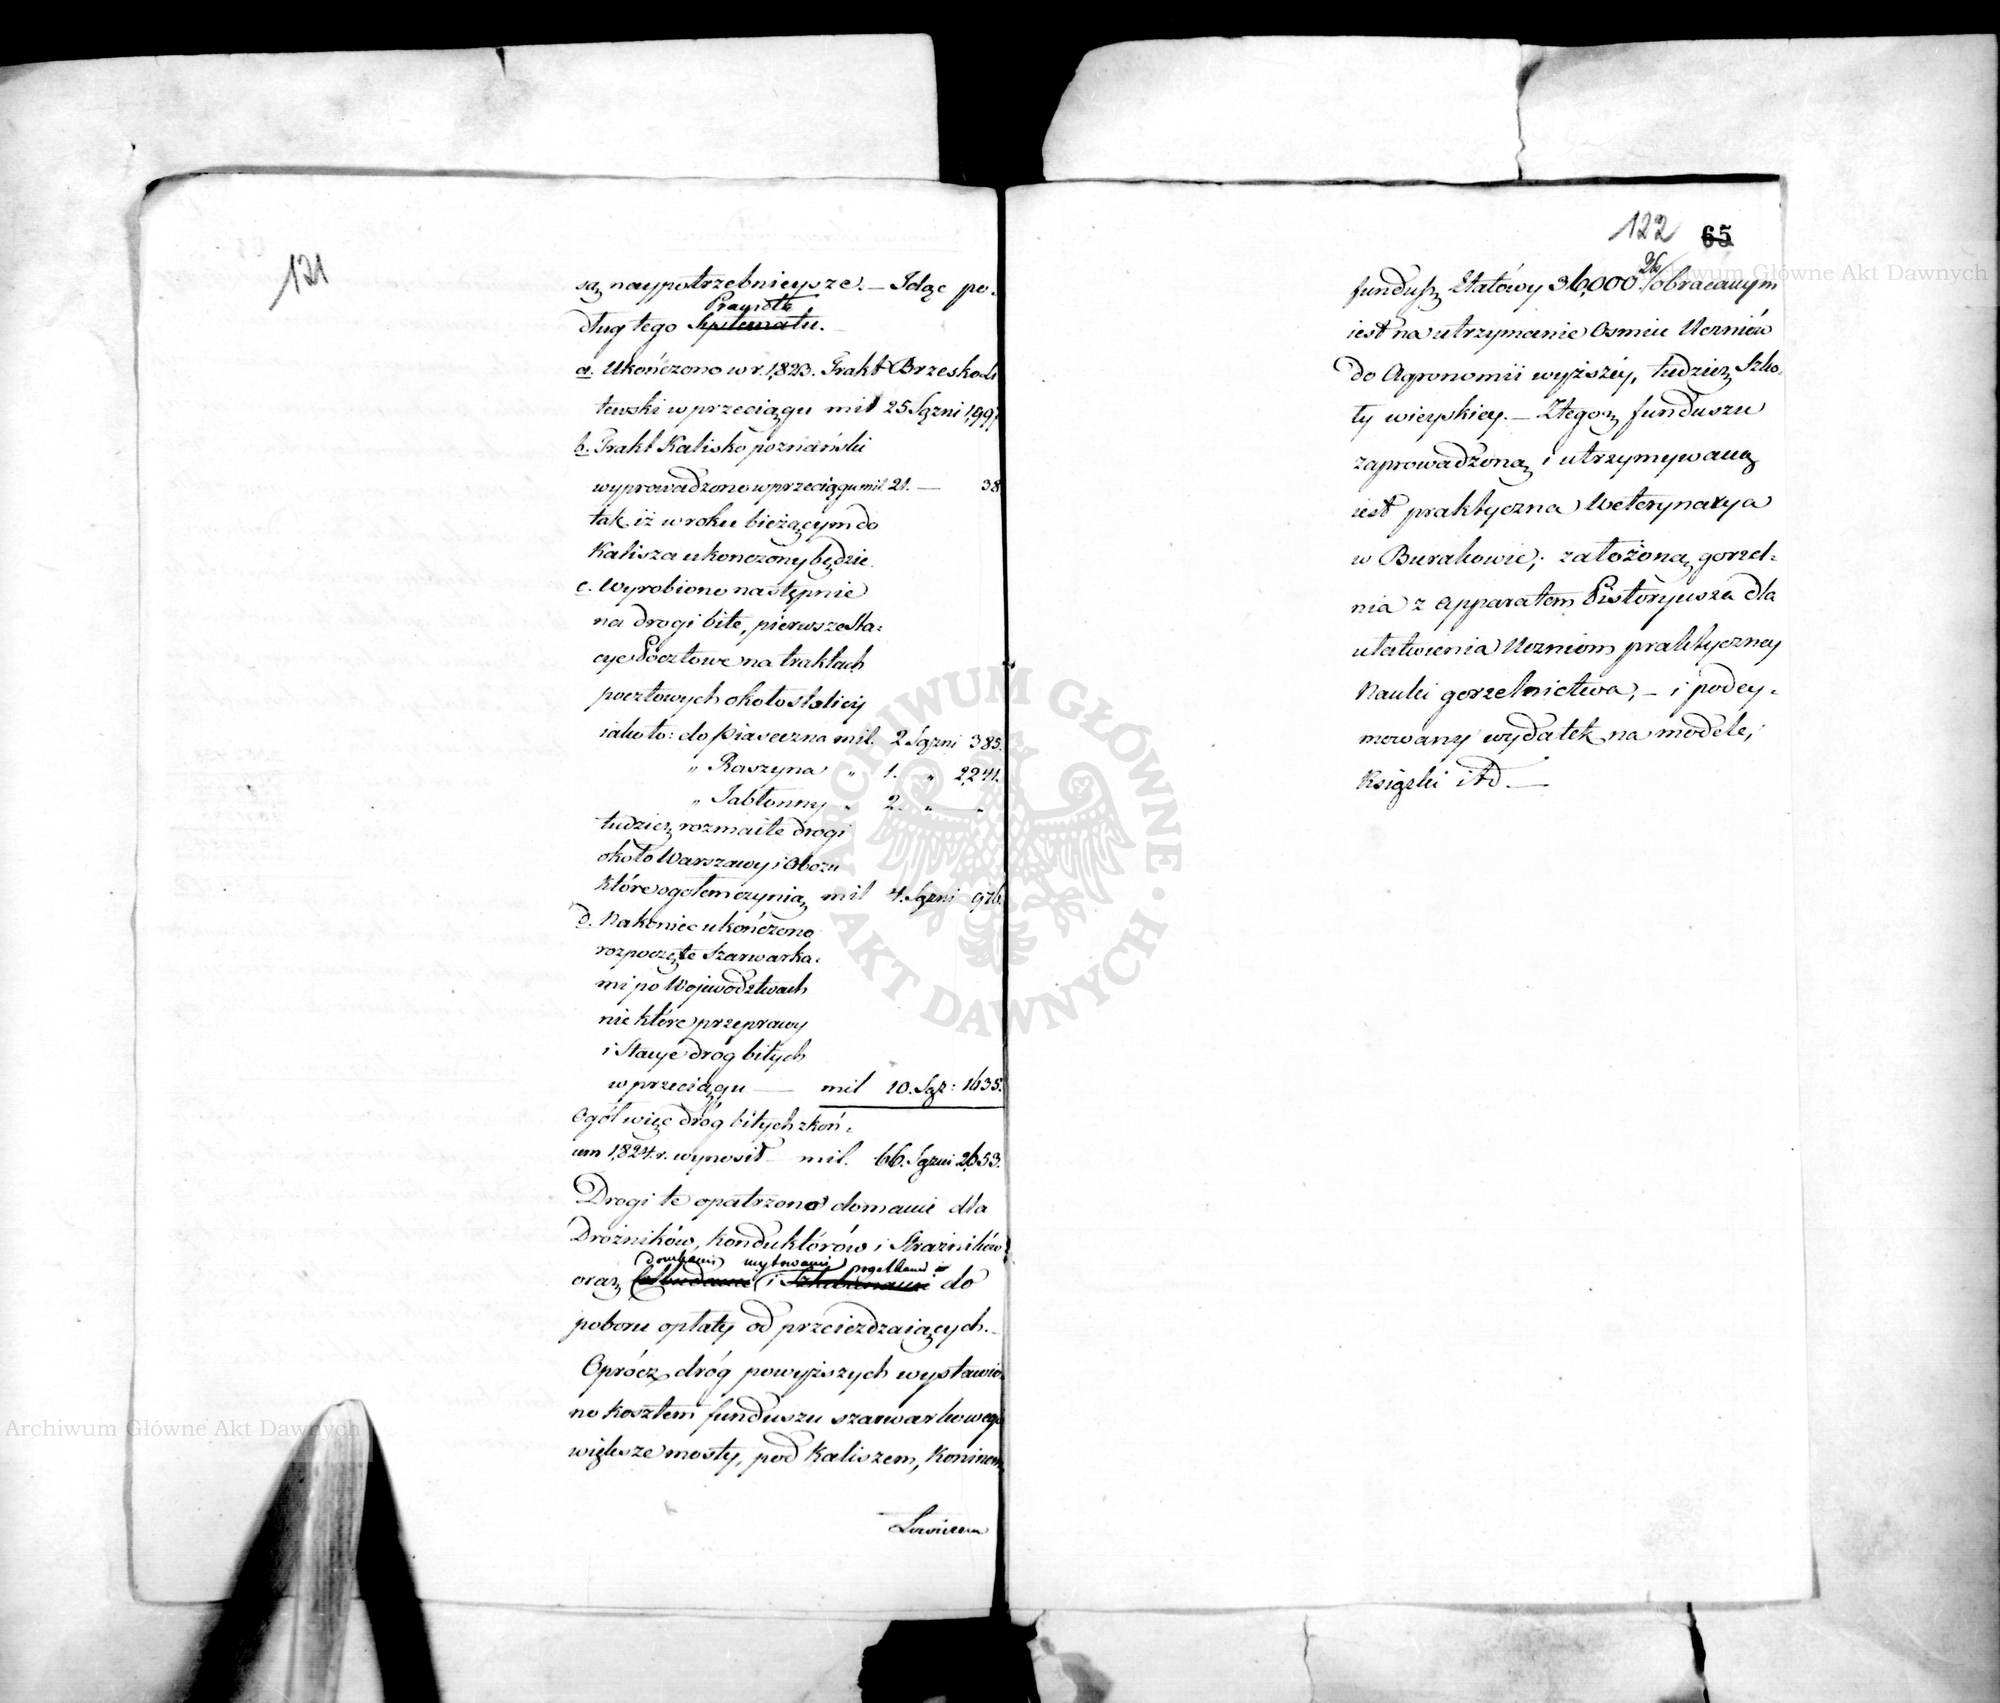 121
są naypotrzebnieysze. – Idąc po-
Prawidła
dług tego Systematu. –
a. Ukończono w r. 1,823. Trakt Brzesko Li
tewski w przeciągu mil 25 Sążni 1,997
b. Trakt Kalisko poznański
wyprowadzono w przeciągu mil 21. — 38
tak iż w roku bieżącym do
Kalisza ukonczony będzie.
c. Wyrobiono następnie
na drogi bite, pierwsze Sta-
cye Pocztowe na traktach
pocztowych około stolicy
iako to: do Piaseczna mil. 2 Sążni 385.
" Raszyna " 1. " 2,241.
" Jabłonny " 2. " "
tudzież rozmaite drogi
około Warszawy i Obozu
które ogołem czynią mil 4. Sążni 976.
d. Nakoniec ukończono
rozpoczęte Szarwarka-
mi po Województwach
nie które przeprawy
i Stacye dróg bitych
w przeciągu — mil 10. Sąż: 1635.
Ogół więc dróg bitych z koń-
cem 1,824. r. wynosił – mil. 66. Sążni 2,653.
Drogi te opatrzono domami dla
Dróżników, Konduktorów i Strażników
domkami mytowemi rogatkami
oraz i do
poboru opłaty od przeieżdzaiących. –
Oprócz dróg powyższych wystawio-
no kosztem funduszu szarwarkowego
większe mosty, pod Kaliszem, Koninem,
Łowiczem
122 65
fundusz Etatowy 36,000 obracanym
iest na utrzymanie Osmiu Uczniów
do Agronomii wyższéy, tudzież Szko-
ły wieyskiey. – Z tegoż funduszu
zaprowadzoną i utrzymywaną
iest praktyczna Weterynarya
w Burakowie; założoną gorzel-
nia z Apparatem Pistoryusza dla
ułatwienia Uczniom praktyczney
Nauki gorzelnictwa, – i podey-
mowany wydatek na modele,
Książki itd. —
ARCHIWUM GŁÓWNE AKT DAWNYCH
Archiwum Główne Akt Dawnych
Archiwum Główne Akt Dawnych